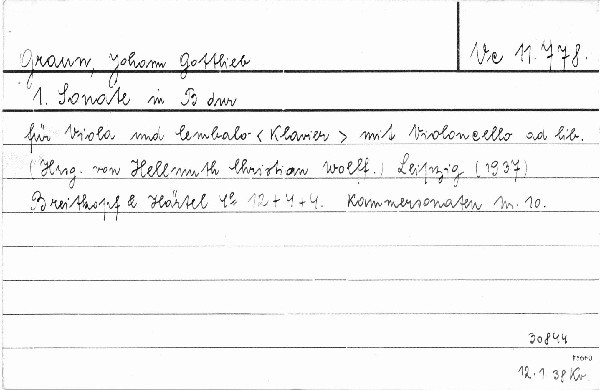 Graun, Johann Gottlieb
Vc 11.778.
1. Sonate in B dur
für Viola und Cembalo <Klavier> mit Violoncello ad lib.
(Hrsg. von Hellmuth Christian Wolff.) Leipzig (1937)
Breitkopf & Härtel 4° 12+4+4. Kammersonaten Nr. 10.
30844
12.1 38 Kr.